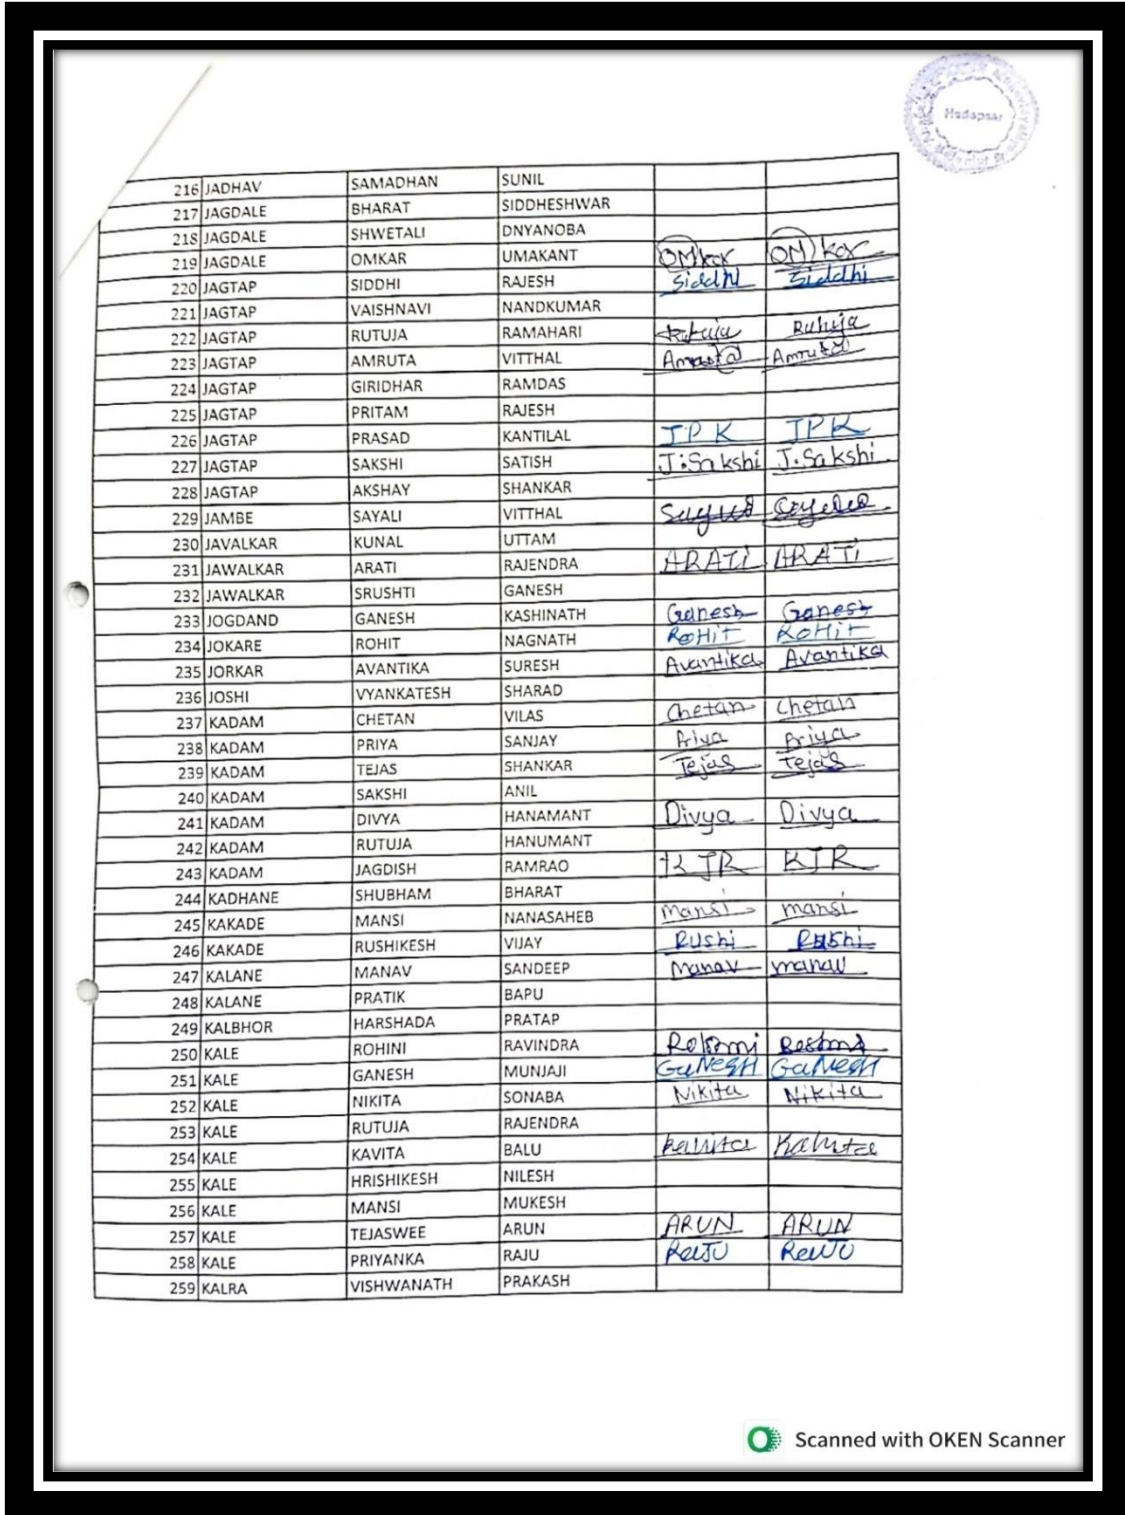 Hadapsar
216 JADHAV SAMADHAN SUNIL
217 JAGDALE BHARAT SIDDHESHWAR
218 JAGDALE SHWETALI DNYANOBA
219 JAGDALE OMKAR UMAKANT OMkar OMkar
220 JAGTAP SIDDHI RAJESH Siddhi Siddhi
221 JAGTAP VAISHNAVI NANDKUMAR
222 JAGTAP RUTUJA RAMAHARI Rutuja Rutuja
223 JAGTAP AMRUTA VITTHAL Amruta Amruta
224 JAGTAP GIRIDHAR RAMDAS
225 JAGTAP PRITAM RAJESH
226 JAGTAP PRASAD KANTILAL JPK JPK
227 JAGTAP SAKSHI SATISH J.Sakshi J.Sakshi
228 JAGTAP AKSHAY SHANKAR
229 JAMBE SAYALI VITTHAL
230 JAVALKAR KUNAL UTTAM
231 JAWALKAR ARATI RAJENDRA ARATi ARATi
232 JAWALKAR SRUSHTI GANESH
233 JOGDAND GANESH KASHINATH Ganesh Ganesh
234 JOKARE ROHIT NAGNATH RoHiT RoHiT
235 JORKAR AVANTIKA SURESH Avantika Avantika
236 JOSHI VYANKATESH SHARAD
237 KADAM CHETAN VILAS Chetan Chetan
238 KADAM PRIYA SANJAY Priya Priya
239 KADAM TEJAS SHANKAR Tejas Tejas
240 KADAM SAKSHI ANIL
241 KADAM DIVYA HANAMANT Divya Divya
242 KADAM RUTUJA HANUMANT
243 KADAM JAGDISH RAMRAO KJR KJR
244 KADHANE SHUBHAM BHARAT
245 KAKADE MANSI NANASAHEB mansi mansi
246 KAKADE RUSHIKESH VIJAY Rushi Rushi
247 KALANE MANAV SANDEEP Manav manav
248 KALANE PRATIK BAPU
249 KALBHOR HARSHADA PRATAP
250 KALE ROHINI RAVINDRA
251 KALE GANESH MUNJAJI GaNesH GaNesH
252 KALE NIKITA SONABA Nikita Nikita
253 KALE RUTUJA RAJENDRA
254 KALE KAVITA BALU Kavita Kavita
255 KALE HRISHIKESH NILESH
256 KALE MANSI MUKESH
257 KALE TEJASWEE ARUN ARUN ARUN
258 KALE PRIYANKA RAJU
259 KALRA VISHWANATH PRAKASH
Scanned with OKEN Scanner